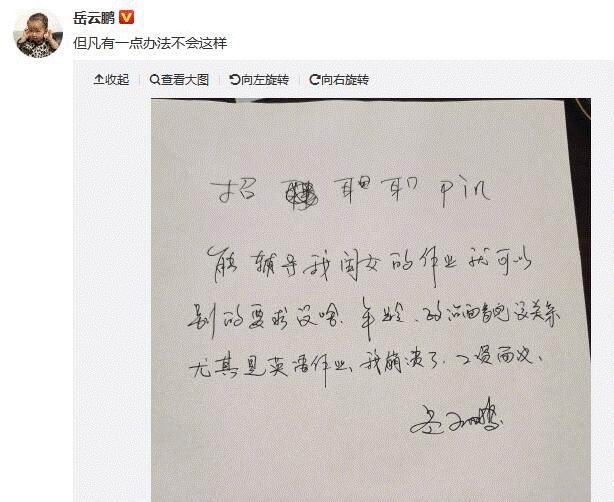 岳云鹏
但凡有一点办法不会这样
收起 查看大图 向左旋转 向右旋转
招 pin
能辅导我闺女的作业就可以
别的要求没啥、年龄、政治面貌没关系
尤其是英语作业、我崩溃了、工资面议、
岳云鹏